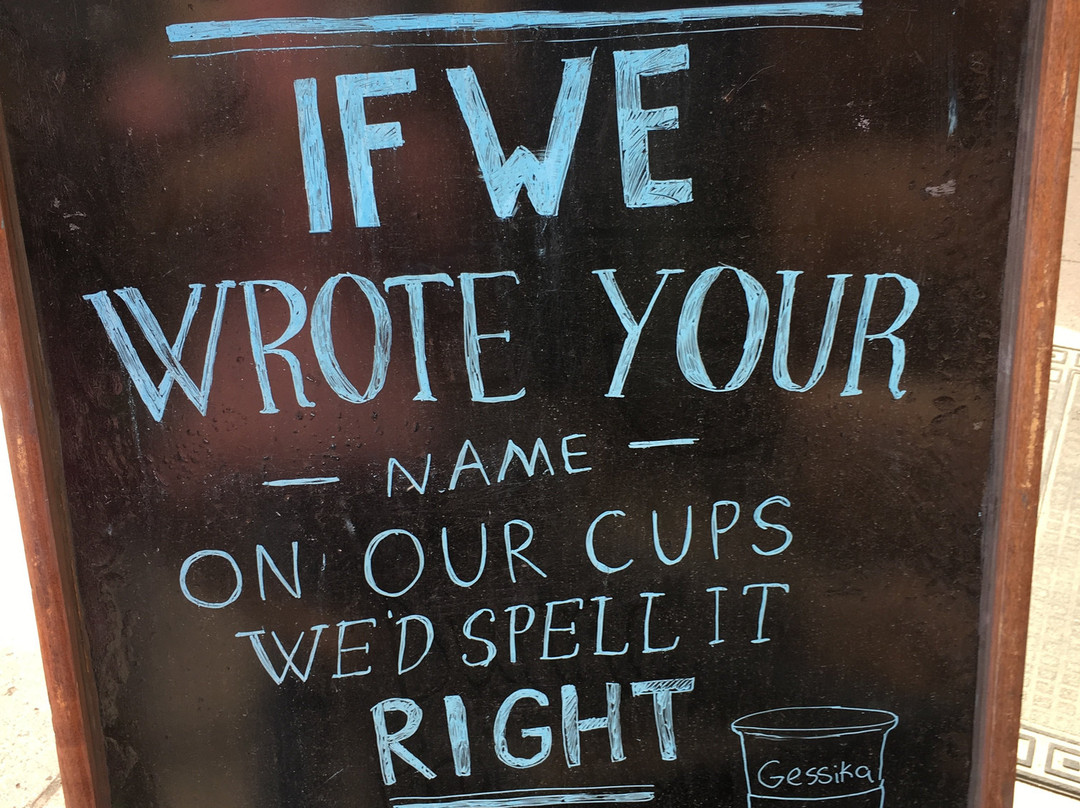 IF WE
WROTE YOUR
— NAME —
ON OUR CUPS
WE'D SPELL IT
RIGHT
Gessika